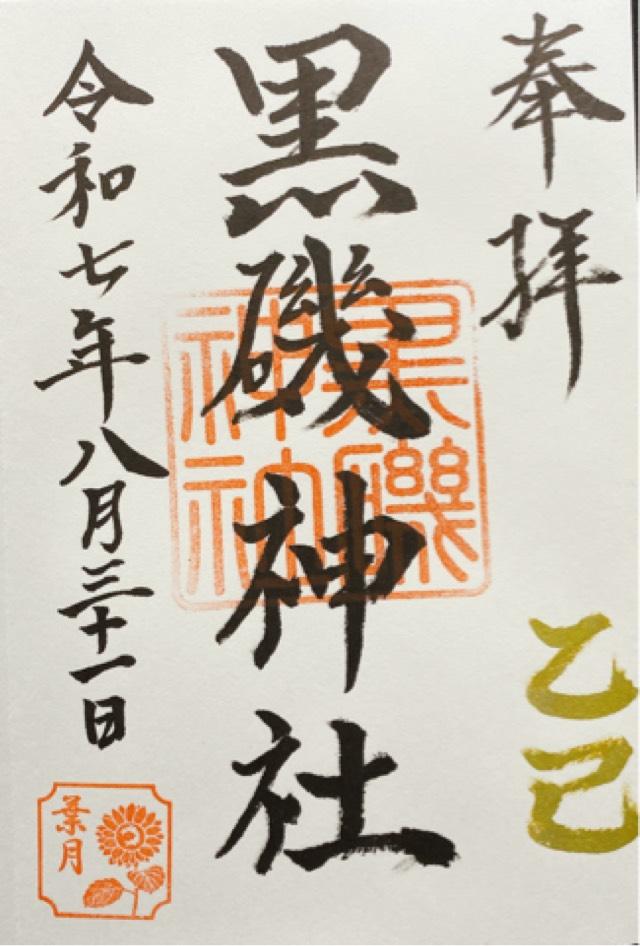 奉拝
乙巳
黒磯神社
黒磯神社
令和七年八月三十一日
葉月